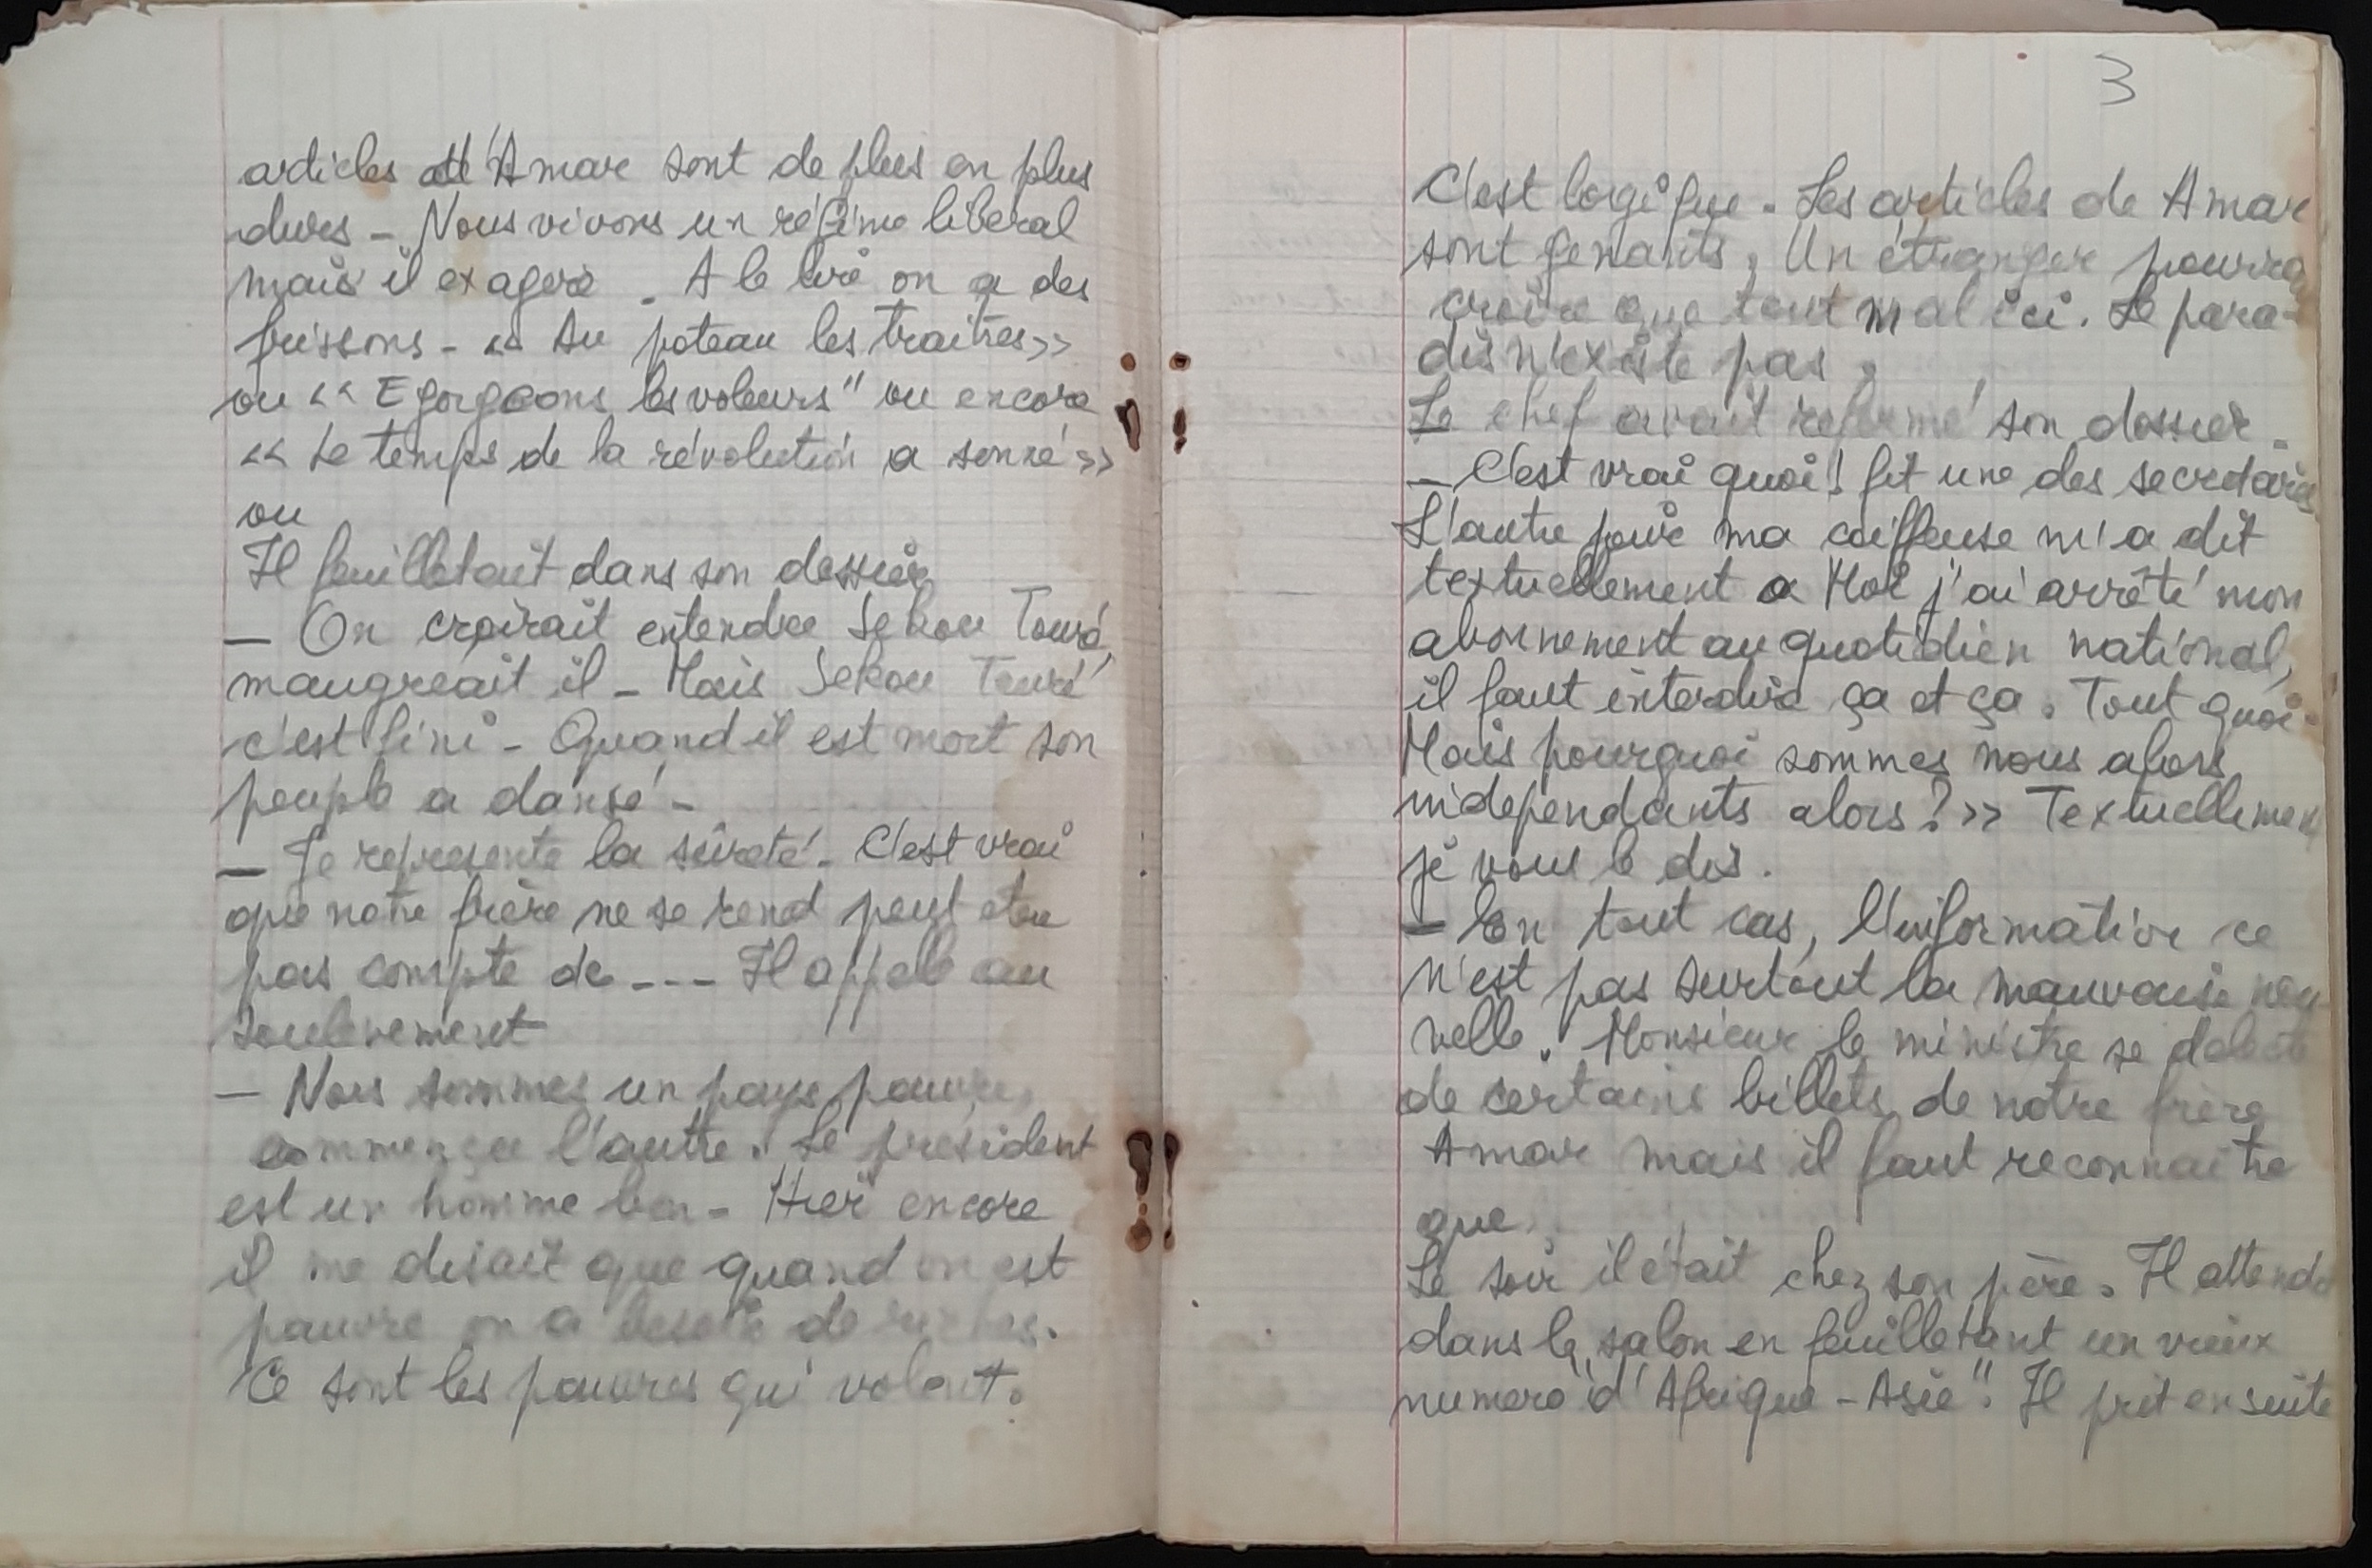 articles d'Amar sont de plus en plus
durs - Nous vivons un régime libéral
mais il exagère. A le lire on a des
frissons - << Au poteau les traitres>>
ou << Egorgeons les voleurs" ou encore
<< Le temps de la révolution a sonné >>
ou
Il feuilletait dans son dossier
— On croirait entendre Sekou Touré,
maugréait il - Mais Sekou Touré
c'est fini - Quand il est mort son
peuple a dansé -
— Je represente la sûreté. C'est vrai
que notre frère ne se rend peut etre
pas compte de --- Il appele au
soulevement
— Nous sommes un pays pauvre,
commença l'autre. Le president
est un homme bon - Hier encore
il me disait que quand on est
pauvre on a besoin de riches.
Ce sont les pauvres qui volent.
3
C'est logique. Les articles de Amar
sont genants. Un étranger pourra
croire que tout mal ici. Le para-
dis n'existe pas.
Le chef avait refermé son dossier.
— C'est vrai quoi! fit une des secretaires
L'autre jour ma coiffeuse m'a dit
textuellement a Moi j'ai arrêté mon
abonnement au quotidien national,
il faut interdire ça et ça. Tout quoi.
Mais pourquoi sommes nous alors
independants alors? >> Textuellement
je vous le dis.
— En tout cas, l'information ce
n'est pas surtout la mauvaise nou
velle. Monsieur le ministre se delecte
de certains billets de notre frère
Amar mais il faut reconnaitre
que.
Le soir il était chez son père. Il attendit
dans le salon en feuilletant un vieux
numero d'"Afrique - Asie". Il prit ensuite